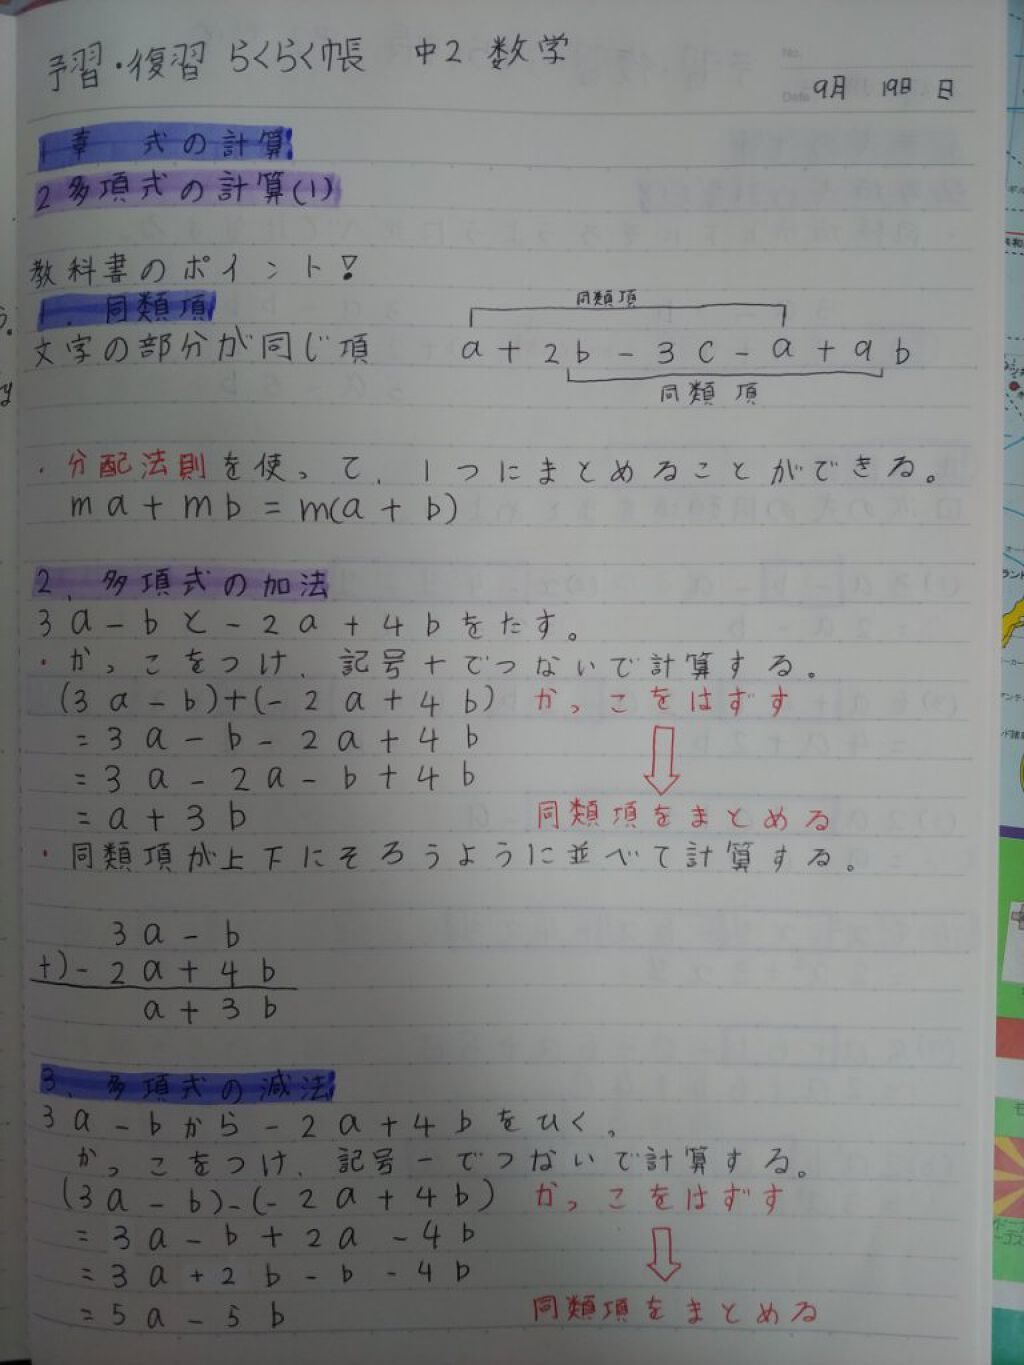 予習・復習 らくらく帳 中2 数学
No.
Date 9月 19日 日
1章 式の計算
2 多項式の計算(1)
教科書のポイント!
1. 同類項
同類項
文字の部分が同じ項 a+2b-3c-a+9b
同類項
・分配法則を使って、1つにまとめることができる。
ma+mb=m(a+b)
2. 多項式の加法
3a-bと-2a+4bをたす。
・かっこをつけ、記号+でつないで計算する。
(3a-b)+(-2a+4b) かっこをはずす
=3a-b-2a+4b
=3a-2a-b+4b
=a+3b 同類項をまとめる
・同類項が上下にそろうように並べて計算する。
3a-b
+)-2a+4b
a+3b
3. 多項式の減法
3a-bから-2a+4bをひく。
かっこをつけ、記号-でつないで計算する。
(3a-b)-(-2a+4b) かっこをはずす
=3a-b+2a-4b
=3a+2b-b-4b
=5a-5b 同類項をまとめる